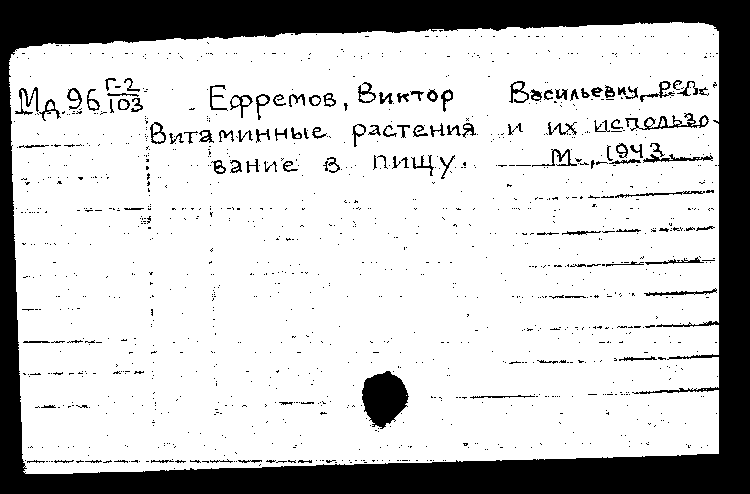 Мд 96 Г-2/103 Ефремов, Виктор Васильевич, ред.
Витаминные растения и их использо-
вание в пищу. М., 1943.